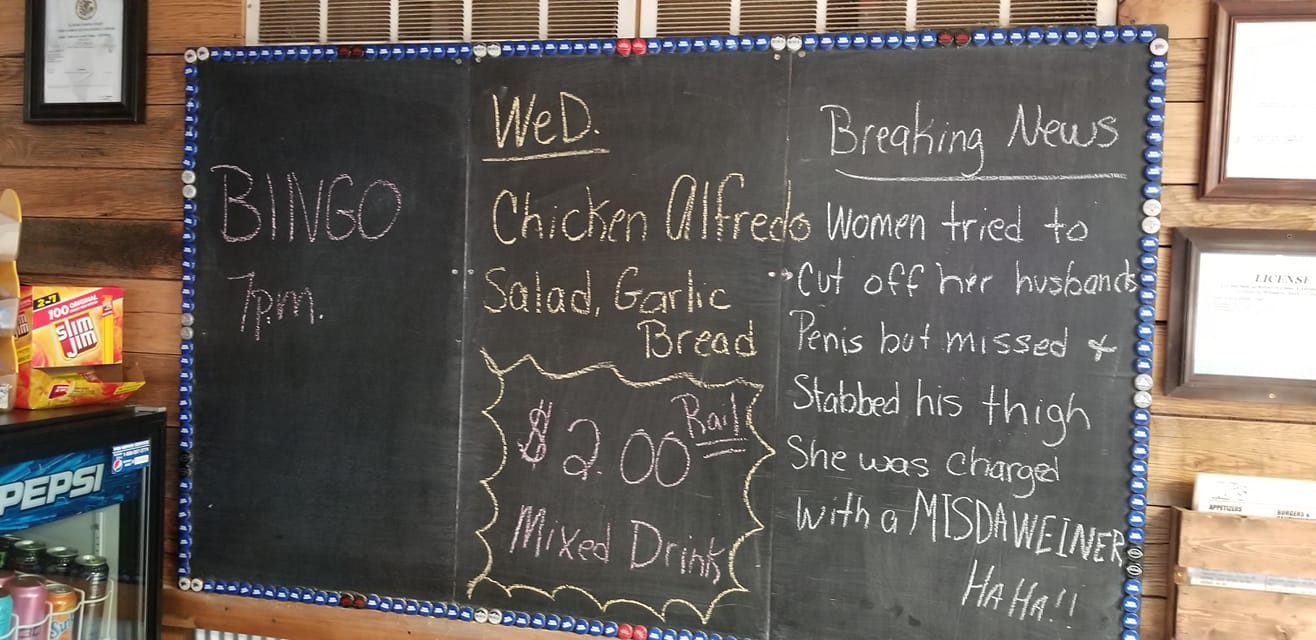 BINGO
7pm.
WeD.
Chicken Alfredo
Salad, Garlic
Bread
$2.00 Rail
Mixed Drink
Breaking News
Women tried to
Cut off her husbands
Penis but missed &
Stabbed his thigh
She was charged
with a MISDAWEINER
HA HA!!
2-1
100 ORIGINAL
slim
jim
PEPSI
LICENSE
APPETIZERS
BURGERS &